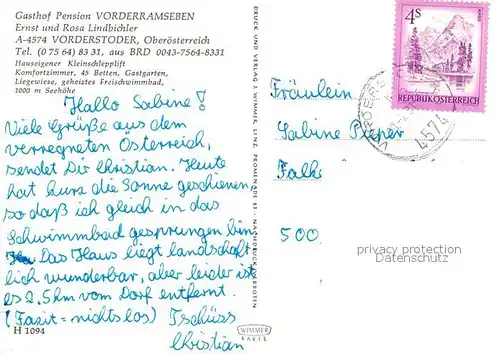 Gasthof Pension VORDERRAMSEBEN
Ernst und Rosa Lindbichler
A-4574 VORDERSTODER, Oberösterreich
Tel. (0 75 64) 83 31, aus BRD 0043-7564-8331
Hauseigener Kleinschlepplift
Komfortzimmer, 45 Betten, Gastgarten,
Liegewiese, geheiztes Freischwimmbad,
1000 m Seehöhe
Hallo Sabine!
Viele Grüße aus dem
verregneten Österreich,
sendet Dir Christian. Heute
hat kurz die Sonne geschienen,
so daß ich gleich in das
Schwimmbad gesprungen bin.
Das Haus liegt landschaft
lich wunderbar, aber leider ist
es 2.5 km vom Dorf entfernt.
(Fazit = nichts los) Tschüss
Christian
H 1094
DRUCK UND VERLAG J. WIMMER, LINZ, PROMENADE 23 - NACHDRUCK VERBOTEN
WIMMER
KARTE
4S
REPUBLIK ÖSTERREICH
4574
Fräulein
Sabine Pieper
500
privacy protection
Datenschutz